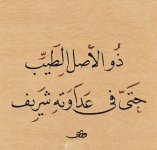 ذُو الأَصلِ الطَّيِّبِ
حَتَّى فِي عَدَاوَتِهِ شَرِيف